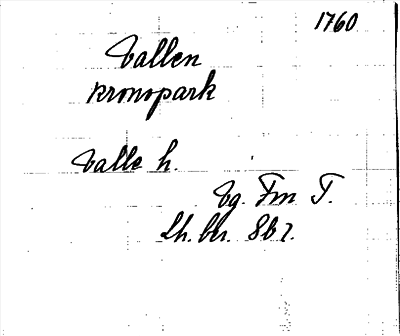 1760
Vallen
kronopark
Valle h.
Vg. Fm T.
Lh. bh. 8b2.